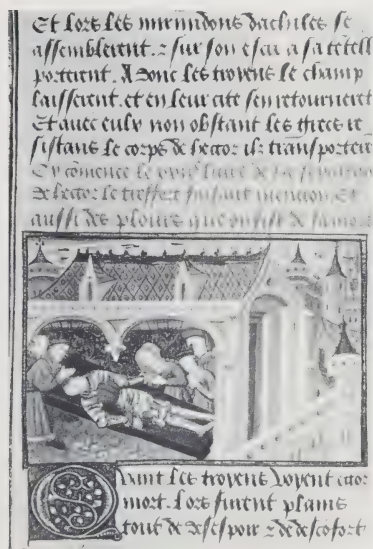 Et lors les mirmidons dachilles se
assemblerent. ⁊ sur son escu a sa tente le
porterent. A donc les troyens le champ
laisserent. et en leur cite sen retournerent
Et avec eulx non obstant les grecs re
sistans le corps de hector ilz transporterent
Cy comence le livre de la
de hector le treffort faisant mencion. Et
aussi des plours que on fist de sa mort
Quant les troyens voyent ector
mort. Lors furent plains
tout de desespoir ⁊ de desconfort